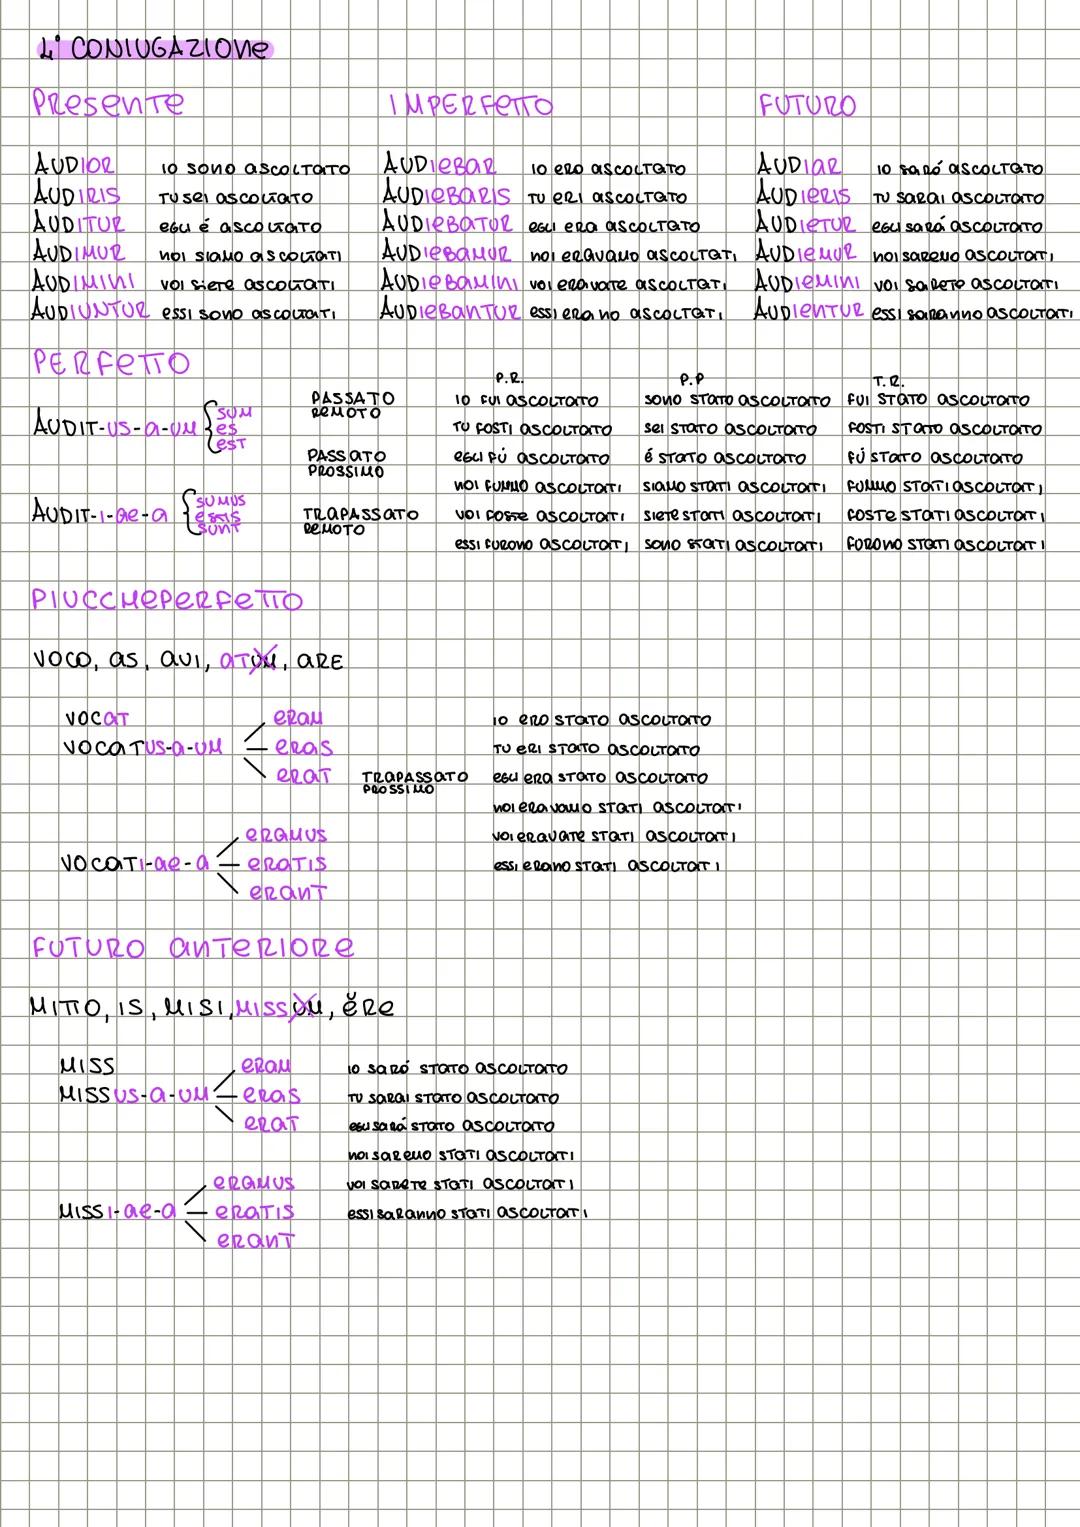 4ª CONIUGAZIONE
PRESENTE IMPERFETTO FUTURO
AUDIOR IO SONO ASCOLTATO AUDIEBAR IO ERO ASCOLTATO AUDIAR IO SARÓ ASCOLTATO
AUDIRIS TU SEI ASCOLTATO AUDIEBARIS TU ERI ASCOLTATO AUDIERIS TU SARAI ASCOLTATO
AUDITUR EGLI É ASCOLTATO AUDIEBATUR EGLI ERA ASCOLTATO AUDIETUR EGLI SARÁ ASCOLTATO
AUDIMUR NOI SIAMO ASCOLTATI AUDIEBAMUR NOI ERAVAMO ASCOLTATI AUDIEMUR NOI SAREMO ASCOLTATI
AUDIMINI VOI SIETE ASCOLTATI AUDIEBAMINI VOI ERAVATE ASCOLTATI AUDIEMINI VOI SARETE ASCOLTATI
AUDIUNTUR ESSI SONO ASCOLTATI AUDIEBANTUR ESSI ERANO ASCOLTATI AUDIENTUR ESSI SARANNO ASCOLTATI
PERFETTO
P.R. P.P T.R.
AUDIT-US-A-UM { SUM ES EST
AUDIT-I-AE-A { SUMUS ESTIS SUNT
PASSATO REMOTO
PASSATO PROSSIMO
TRAPASSATO REMOTO
IO FUI ASCOLTATO SONO STATO ASCOLTATO FUI STATO ASCOLTATO
TU FOSTI ASCOLTATO SEI STATO ASCOLTATO FOSTI STATO ASCOLTATO
EGLI FÚ ASCOLTATO É STATO ASCOLTATO FÚ STATO ASCOLTATO
NOI FUMMO ASCOLTATI SIAMO STATI ASCOLTATI FUMMO STATI ASCOLTATI
VOI FOSTE ASCOLTATI SIETE STATI ASCOLTATI FOSTE STATI ASCOLTATI
ESSI FURONO ASCOLTATI SONO STATI ASCOLTATI FORONO STATI ASCOLTATI
PIUCCHEPERFETTO
VOCO, AS, AVI, ATUM, ARE
VOCAT ERAM IO ERO STATO ASCOLTATO
VOCATUS-A-UM ERAS TU ERI STATO ASCOLTATO
ERAT TRAPASSATO PROSSIMO EGLI ERA STATO ASCOLTATO
NOI ERAVAMO STATI ASCOLTATI
ERAMUS VOI ERAVATE STATI ASCOLTATI
VOCATI-AE-A ERATIS ESSI ERANO STATI ASCOLTATI
ERANT
FUTURO ANTERIORE
MITTO, IS, MISI, MISSUM, ĔRE
MISS ERAM IO SARÓ STATO ASCOLTATO
MISSUS-A-UM ERAS TU SARAI STATO ASCOLTATO
ERAT EGLI SARÁ STATO ASCOLTATO
NOI SAREMO STATI ASCOLTATI
ERAMUS VOI SARETE STATI ASCOLTATI
MISSI-AE-A ERATIS ESSI SARANNO STATI ASCOLTATI
ERANT